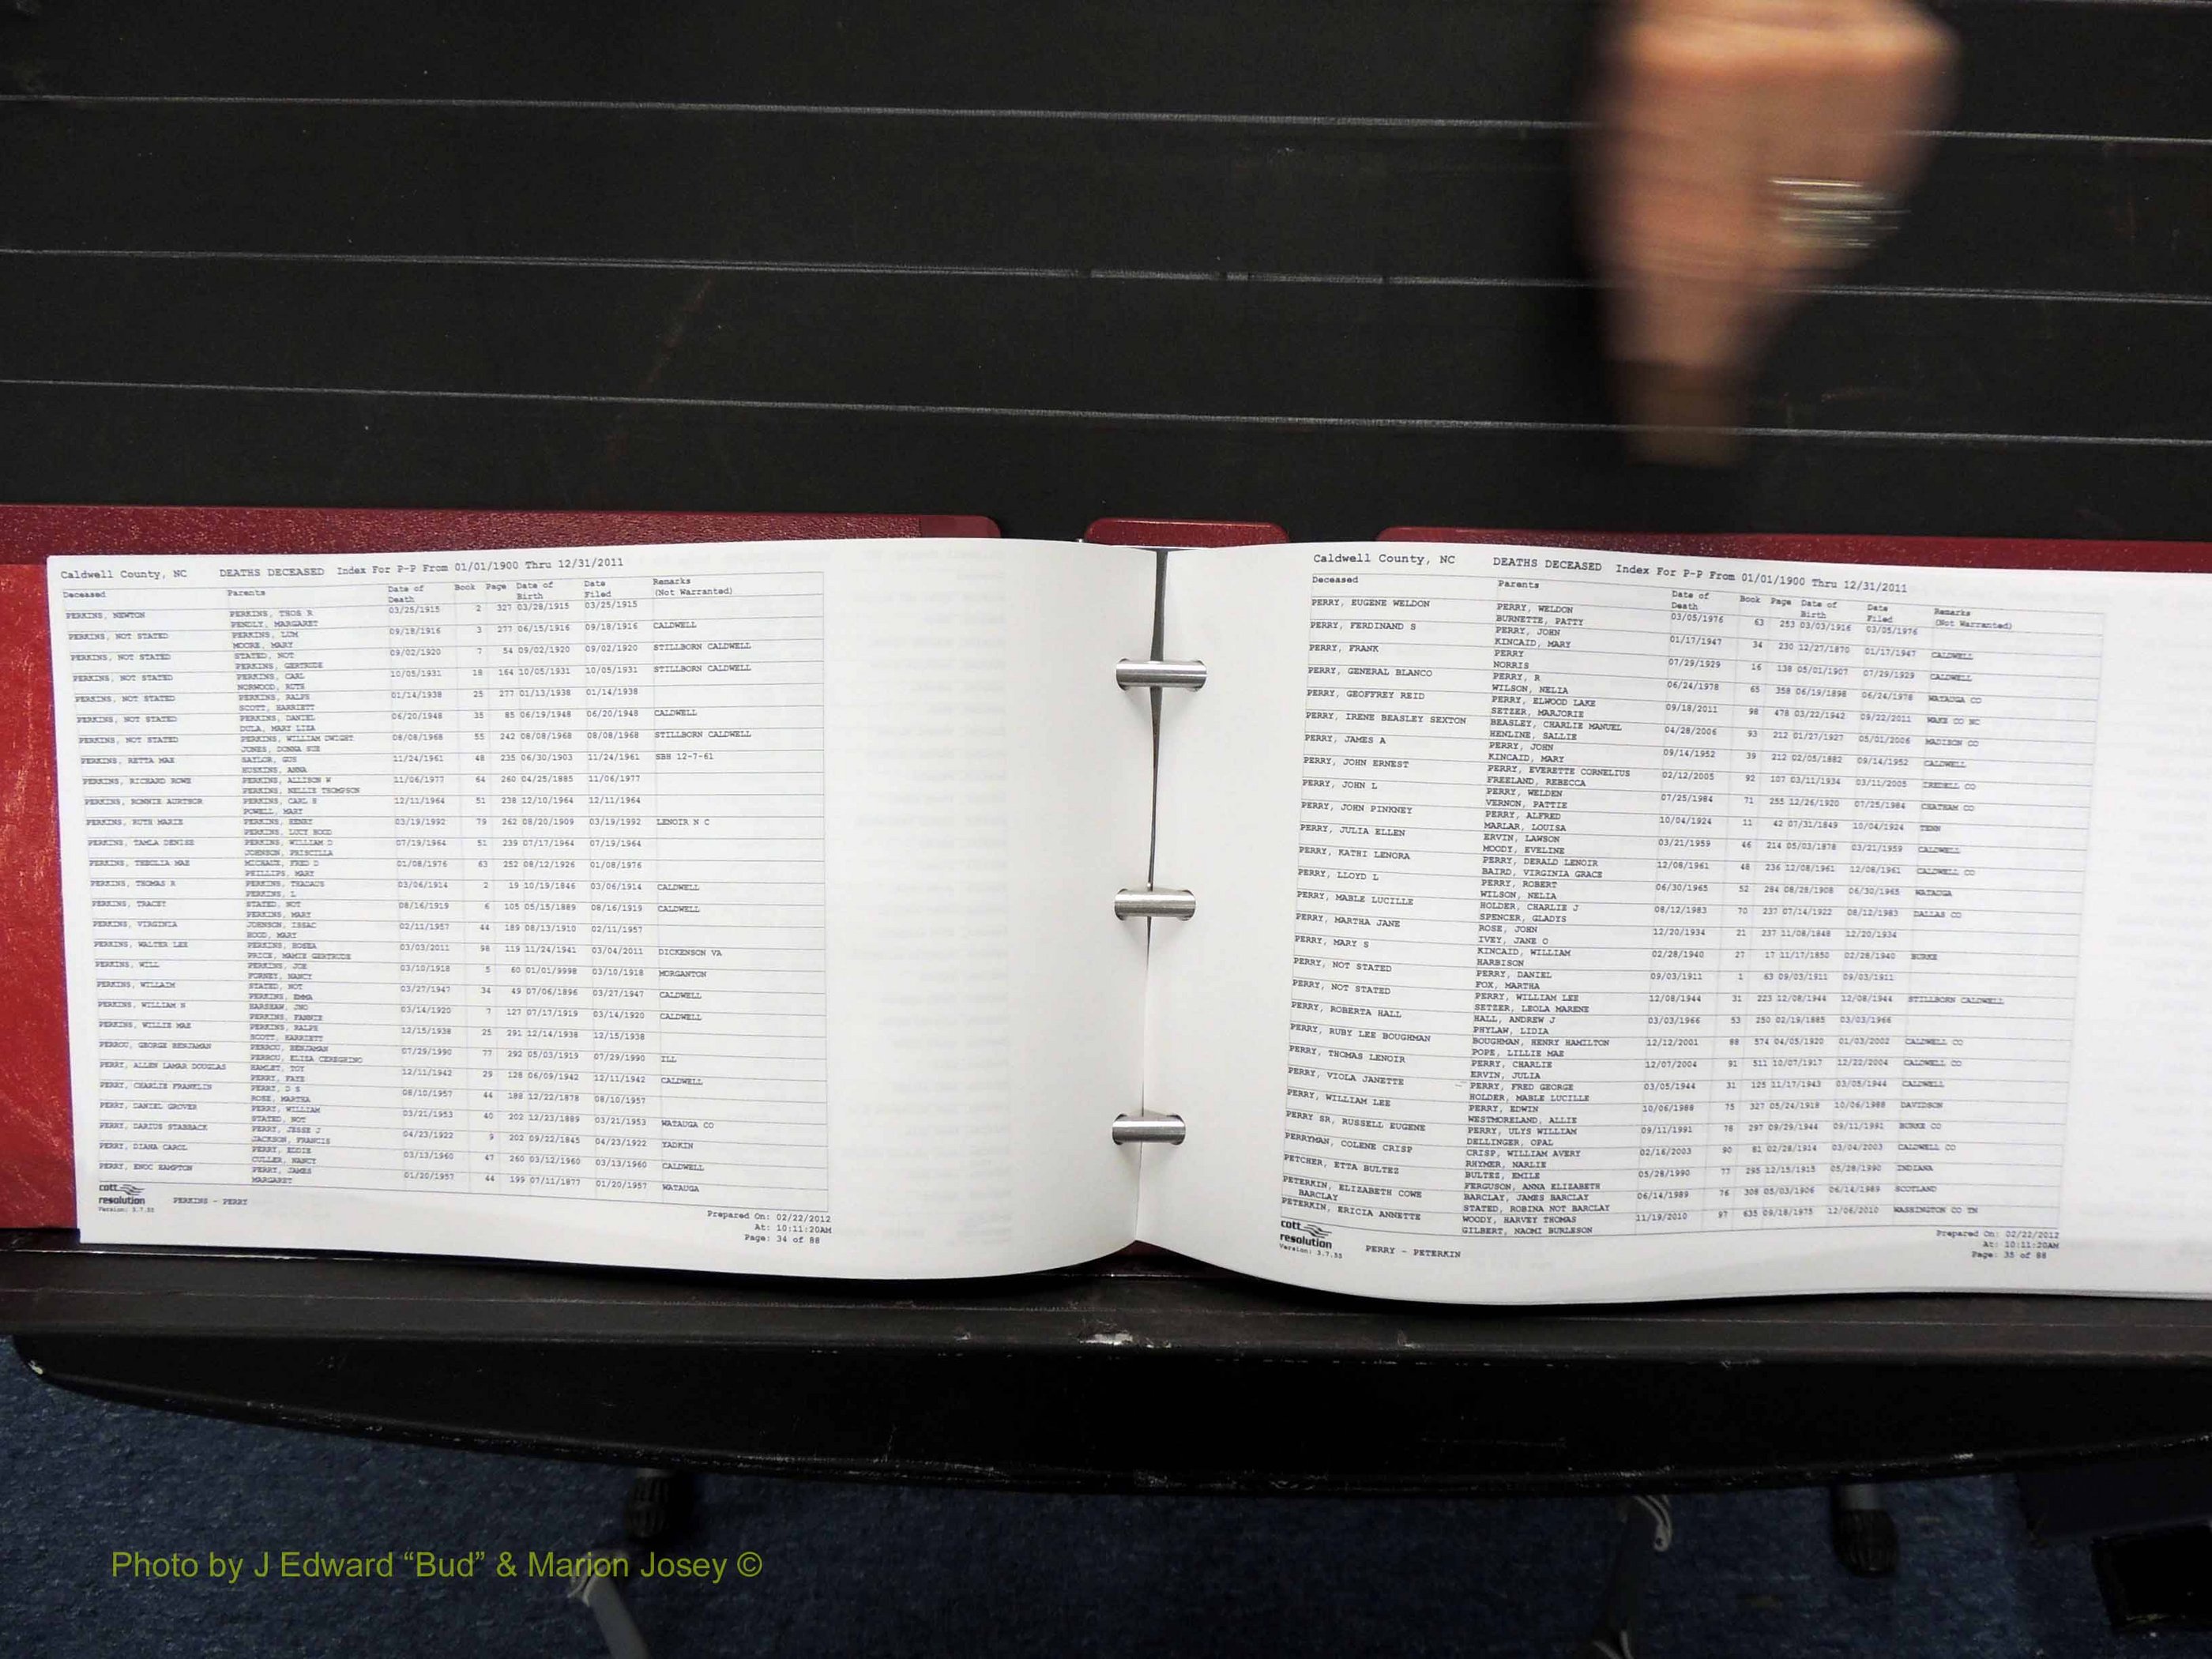 Caldwell County, NC DEATHS DECEASED Index For P-P From 01/01/1900 Thru 12/31/2011
Deceased Parents Date of Death Book Page Date of Birth Date Filed Remarks (Not Warranted)
PERKINS, NEWTON PERKINS, THOS R 03/25/1915 2 327 03/28/1915 03/25/1915
PENDLY, MARGARET
PERKINS, NOT STATED PERKINS, LUM 09/18/1916 3 277 06/15/1916 09/18/1916 CALDWELL
MOORE, MARY
PERKINS, NOT STATED STATED, NOT 09/02/1920 7 54 09/02/1920 09/02/1920 STILLBORN CALDWELL
PERKINS, GERTRUDE
PERKINS, NOT STATED PERKINS, CARL 10/05/1931 18 164 10/05/1931 10/05/1931 STILLBORN CALDWELL
NORWOOD, RUTH
PERKINS, NOT STATED PERKINS, RALPH 01/14/1938 25 277 01/13/1938 01/14/1938
SCOTT, HARRIETT
PERKINS, NOT STATED PERKINS, DANIEL 06/20/1948 35 85 06/19/1948 06/20/1948 CALDWELL
DULA, MARY LIZA
PERKINS, NOT STATED PERKINS, WILLIAM DWIGHT 08/08/1968 55 242 08/08/1968 08/08/1968 STILLBORN CALDWELL
JONES, DONNA SUE
PERKINS, RETTA MAE SAYLOR, GUS 11/24/1961 48 235 06/30/1903 11/24/1961 SBH 12-7-61
HUSKINS, ANNA
PERKINS, RICHARD ROWE PERKINS, ALLISON W 11/06/1977 64 260 04/25/1885 11/06/1977
PERKINS, NELLIE THOMPSON
PERKINS, RONNIE AURTHOR PERKINS, CARL S 12/11/1964 51 238 12/10/1964 12/11/1964
POWELL, MARY
PERKINS, RUTH MARIE PERKINS, HENRY 03/19/1992 79 262 08/20/1909 03/19/1992 LENOIR N C
PERKINS, LUCY HOOD
PERKINS, TAMLA DENISE PERKINS, WILLIAM D 07/19/1964 51 239 07/17/1964 07/19/1964
JOHNSON, PRISCILLA
PERKINS, THECLIA MAE MICHAUX, FRED D 01/08/1976 63 252 08/12/1926 01/08/1976
PHILLIPS, MARY
PERKINS, THOMAS R PERKINS, THADAUS 03/06/1914 2 19 10/19/1846 03/06/1914 CALDWELL
PERKINS, L
PERKINS, TRACEY STATED, NOT 08/16/1919 6 105 05/15/1889 08/16/1919 CALDWELL
PERKINS, MARY
PERKINS, VIRGINIA JOHNSON, ISSAC 02/11/1957 44 189 08/13/1910 02/11/1957
HOOD, MARY
PERKINS, WALTER LEE PERKINS, HOSEA 03/03/2011 98 119 11/24/1941 03/04/2011 DICKENSON VA
PRICE, MAMIE GERTRUDE
PERKINS, WILL PERKINS, JOE 03/10/1918 5 60 01/01/9998 03/10/1918 MORGANTON
FORNEY, NANCY
PERKINS, WILLAIM STATED, NOT 03/27/1947 34 49 07/06/1896 03/27/1947 CALDWELL
PERKINS, EMMA
PERKINS, WILLIAM H HARSHAW, JNO 03/14/1920 7 127 07/17/1919 03/14/1920 CALDWELL
PERKINS, FANNIE
PERKINS, WILLIE MAE PERKINS, RALPH 12/15/1938 25 291 12/14/1938 12/15/1938
SCOTT, HARRIETT
PERROU, GEORGE BENJAMAN PERROU, BENJAMAN 07/29/1990 77 292 05/03/1919 07/29/1990 ILL
PERROU, ELIZA CEREGHINO
PERRY, ALLEN LAMAR DOUGLAS HAMLET, TOY 12/11/1942 29 128 06/09/1942 12/11/1942 CALDWELL
PERRY, FAYE
PERRY, CHARLIE FRANKLIN PERRY, D S 08/10/1957 44 188 12/22/1878 08/10/1957
ROSE, MARTHA
PERRY, DANIEL GROVER PERRY, WILLIAM 03/21/1953 40 202 12/23/1889 03/21/1953 WATAUGA CO
STATED, NOT
PERRY, DARIUS STARBACK PERRY, JESSE J 04/23/1922 9 202 09/22/1845 04/23/1922 YADKIN
JACKSON, FRANCIS
PERRY, DIANA CAROL PERRY, EDDIE 03/13/1960 47 260 03/12/1960 03/13/1960 CALDWELL
CULLER, NANCY
PERRY, ENOC HAMPTON PERRY, JAMES 01/20/1957 44 199 07/11/1877 01/20/1957 WATAUGA
MARGARET
cott
resolution
Version: 3.7.55
PERKINS - PERRY
Prepared On: 02/22/2012
At: 10:11:20AM
Page: 34 of 88
Caldwell County, NC DEATHS DECEASED Index For P-P From 01/01/1900 Thru 12/31/2011
Deceased Parents Date of Death Book Page Date of Birth Date Filed Remarks (Not Warranted)
PERRY, EUGENE WELDON PERRY, WELDON 03/05/1976 63 253 03/03/1916 03/05/1976
BURNETTE, PATTY
PERRY, FERDINAND S PERRY, JOHN 01/17/1947 34 230 12/27/1870 01/17/1947 CALDWELL
KINCAID, MARY
PERRY, FRANK PERRY 07/29/1929 16 138 05/01/1907 07/29/1929 CALDWELL
NORRIS
PERRY, GENERAL BLANCO PERRY, R 06/24/1978 65 358 06/19/1898 06/24/1978 WATAUGA CO
WILSON, NELIA
PERRY, GEOFFREY REID PERRY, ELWOOD LAKE 09/18/2011 98 478 03/22/1942 09/22/2011 WAKE CO NC
SETZER, MARJORIE
PERRY, IRENE BEASLEY SEXTON BEASLEY, CHARLIE MANUEL 04/28/2006 93 212 01/27/1927 05/01/2006 MADISON CO
HENLINE, SALLIE
PERRY, JAMES A PERRY, JOHN 09/14/1952 39 212 02/05/1882 09/14/1952 CALDWELL
KINCAID, MARY
PERRY, JOHN ERNEST PERRY, EVERETTE CORNELIUS 02/12/2005 92 107 03/11/1934 03/11/2005 IREDELL CO
FREELAND, REBECCA
PERRY, JOHN L PERRY, WELDEN 07/25/1984 71 255 12/26/1920 07/25/1984 CHATHAM CO
VERNON, PATTIE
PERRY, JOHN PINKNEY PERRY, ALFRED 10/04/1924 11 42 07/31/1849 10/04/1924 TENN
MARLAR, LOUISA
PERRY, JULIA ELLEN ERVIN, LAWSON 03/21/1959 46 214 05/03/1878 03/21/1959 CALDWELL
MOODY, EVELINE
PERRY, KATHI LENORA PERRY, DERALD LENOIR 12/08/1961 48 236 12/08/1961 12/08/1961 CALDWELL CO
BAIRD, VIRGINIA GRACE
PERRY, LLOYD L PERRY, ROBERT 06/30/1965 52 284 08/28/1908 06/30/1965 WATAUGA
WILSON, NELIA
PERRY, MABLE LUCILLE HOLDER, CHARLIE J 08/12/1983 70 237 07/14/1922 08/12/1983 DALLAS CO
SPENCER, GLADYS
PERRY, MARTHA JANE ROSE, JOHN 12/20/1934 21 237 11/08/1848 12/20/1934
IVEY, JANE O
PERRY, MARY S KINCAID, WILLIAM 02/28/1940 27 17 11/17/1850 02/28/1940 BURKE
HARBISON
PERRY, NOT STATED PERRY, DANIEL 09/03/1911 1 63 09/03/1911 09/03/1911
FOX, MARTHA
PERRY, NOT STATED PERRY, WILLIAM LEE 12/08/1944 31 223 12/08/1944 12/08/1944 STILLBORN CALDWELL
SETZER, LEOLA MARENE
PERRY, ROBERTA HALL HALL, ANDREW J 03/03/1966 53 250 02/19/1885 03/03/1966
PHYLAW, LIDIA
PERRY, RUBY LEE BOUGHMAN BOUGHMAN, HENRY HAMILTON 12/12/2001 88 574 04/05/1920 01/03/2002 CALDWELL CO
POPE, LILLIE MAE
PERRY, THOMAS LENOIR PERRY, CHARLIE 12/07/2004 91 511 10/07/1917 12/22/2004 CALDWELL CO
ERVIN, JULIA
PERRY, VIOLA JANETTE PERRY, FRED GEORGE 03/05/1944 31 125 11/17/1943 03/05/1944 CALDWELL
HOLDER, MABLE LUCILLE
PERRY, WILLIAM LEE PERRY, EDWIN 10/06/1988 75 327 05/24/1918 10/06/1988 DAVIDSON
WESTMORELAND, ALLIE
PERRY SR, RUSSELL EUGENE PERRY, ULYS WILLIAM 09/11/1991 78 297 09/29/1944 09/11/1991 BURKE CO
DELLINGER, OPAL
PERRYMAN, COLENE CRISP CRISP, WILLIAM AVERY 02/16/2003 90 81 02/28/1914 03/04/2003 CALDWELL CO
RHYMER, NARLIE
PETCHER, ETTA BULTEZ BULTEZ, EMILE 05/28/1990 77 295 12/15/1915 05/28/1990 INDIANA
FERGUSON, ANNA ELIZABETH
PETERKIN, ELIZABETH COWE BARCLAY, JAMES BARCLAY 06/14/1989 76 308 05/03/1906 06/14/1989 SCOTLAND
BARCLAY STATED, ROBINA NOT BARCLAY
PETERKIN, ERICIA ANNETTE WOODY, HARVEY THOMAS 11/19/2010 97 635 09/18/1975 12/06/2010 WASHINGTON CO TN
GILBERT, NAOMI BURLESON
cott
resolution
Version: 3.7.55
PERRY - PETERKIN
Prepared On: 02/22/2012
At: 10:11:20AM
Page: 35 of 88
Photo by J Edward “Bud” & Marion Josey ©